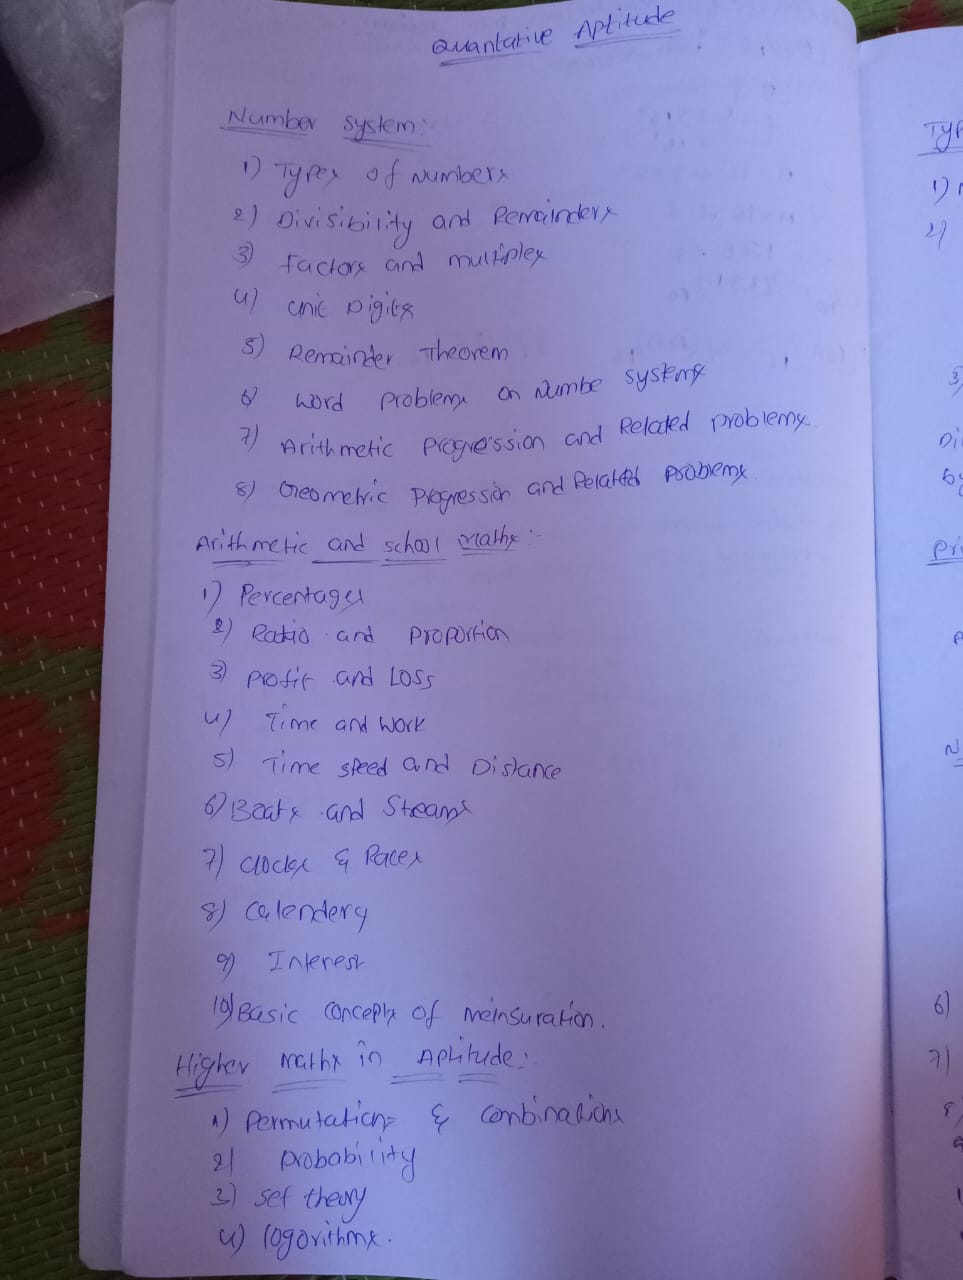 Quantative Aptitude
Number system:
1) Types of numbers
2) Divisibility and Remainders
3) factors and multiples
4) Unit Digits
5) Remainder Theorem
6) word problems on Numbe systems
7) Arithmetic Progression and Related problems.
8) Geometric Progression and Related problems.
Arithmetic and school maths:-
1) Percentages
2) Ratio and proportion
3) profit and Loss
4) Time and work
5) Time speed and Distance
6) Boats and Streams
7) clocks & Races
8) Calenders
9) Interest
10) Basic concepts of meinsuration.
Higher maths in Aptitude:
1) permutations & combinations
2) probability
3) set theory
4) logorithms.
Typ
1)
2)
3)
Di
by
pri
N
6)
7)